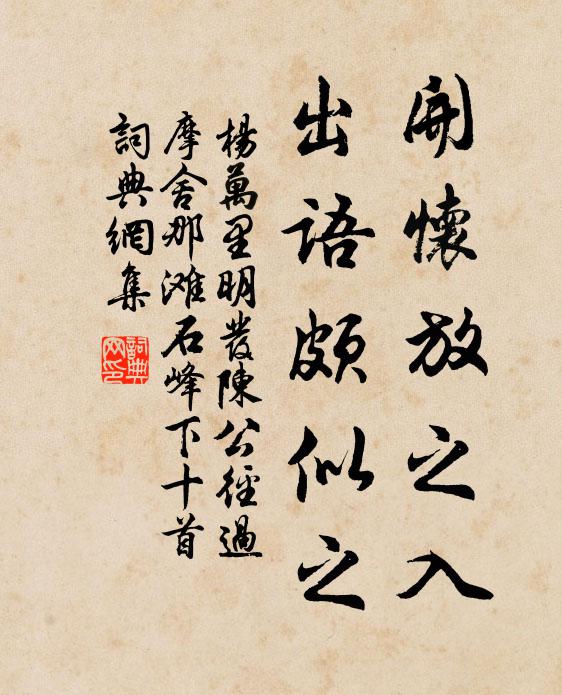 開懷放之入
出語頗似之
楊萬里明發陳公徑過
摩舍那滩石峰下十首
詞典網集
詞典网印